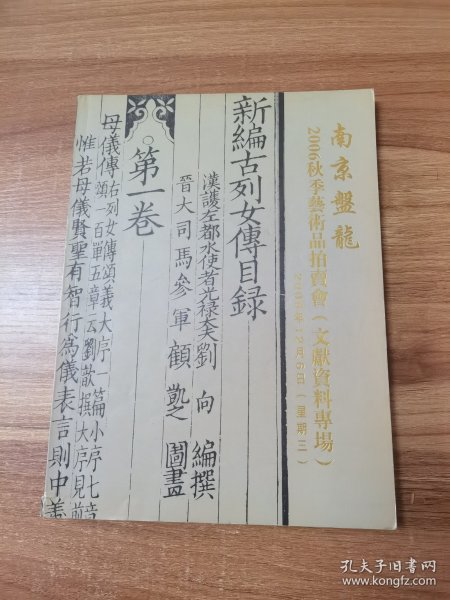 南京盤龍
2006秋季藝術品拍賣會（文獻資料專場）
2006年12月6日（星期三）
新編古列女傳目錄
漢護左都水使者光祿大夫劉向編撰
晉大司馬參軍顧凱之圖畫
第一卷
母儀傳
右列女傳頌義大序一篇小序七
頌一百單五章云劉歆撰大序見前
惟若母儀賢聖有智行為儀表言則中義
孔夫子旧书网
www.kongfz.com